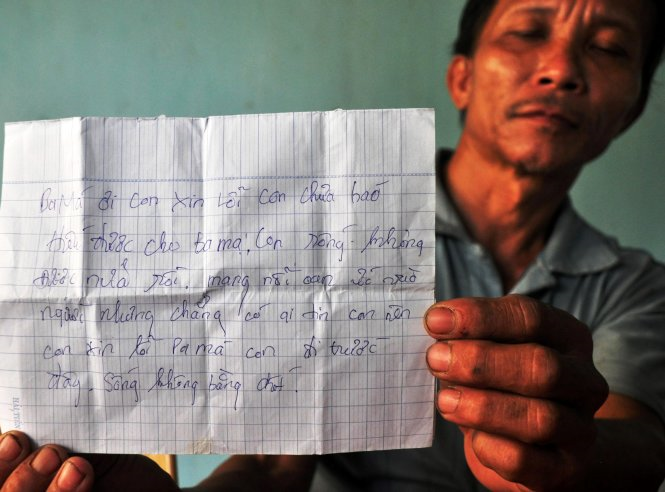 Ba Má ơi con xin lỗi con chưa baó
Hiếu được cho ba má, con sống không
được nưả rồi, mang nỗi oan ức vaò
người nhưng chẳng có ai tin con nên
con xin lỗi Pa má con đi trước
đây. Sống không bằng chết!